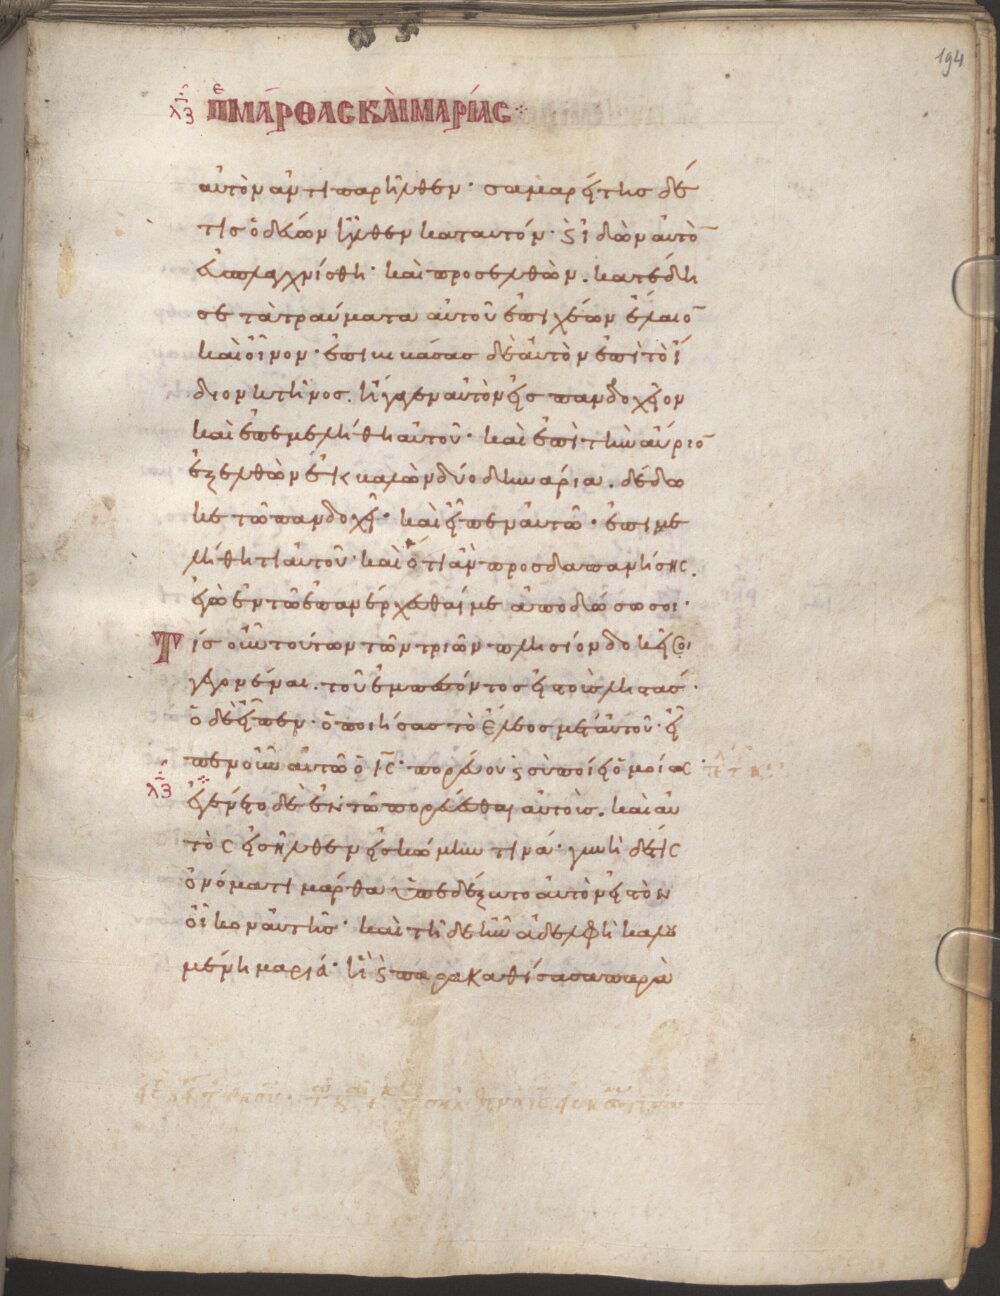 194
λζ περὶ ΜΆΡΘΑΣ ΚΑῚ ΜΑΡΊΑΣ
αὐτὸν ἀντιπαρῆλθεν· σαμαρείτης δέ
τις ὁδεύων ἦλθεν κατ αυτόν· ϛ ἰδὼν αὐτὸ̅
ἐσπλαγχνίσθη· καὶ προσελθὼν. κατέδη
σε τὰ τραύματα αὐτοῦ ἐπιχέων ἔλαιο̅
καὶ οἶνον· ἐπιβιβάσας δὲ αὐτὸν ἐπὶ τὸ ἴ
διον κτῆνος. ἤγαγεν αὐτὸν εἰς πανδοχεῖον
καὶ ἐπεμελήθη αὐτοῦ· καὶ ἐπὶ τὴν αὔριο̅
ἐξελθὼν ἐκβαλὼν δύο δηνάρια. δέδω
κε τῶ πανδοχεῖ· καὶ εἶπεν αὐτῶ· ἐπιμε
λήθητι αὐτοῦ· καὶ ὅτι ἂν προσδαπανήσης.
ἐγὼ ἐν τῶ ἐπανέρχεσθαί με ἀποδώσω σοι·
Τίς οὖν τούτων τῶν τριῶν πλησίον δοκεῖ σοι
γεγονέναι. τοῦ ἐμπεσόντος εἰς τοὺς ληστάς·
ὁ δὲ εἶπεν· ὁ ποιήσας τὸ ἔλεος μετ αὐτοῦ· εἶ
πεν οὖν αὐτῶ ὁ ΙC· πορεύου ϛ σὺ ποίει ὁμοίως·
λζ ἐγένετο δὲ ἐν τῶ πορεύεσθαι αὐτοὺς. καὶ αὐ
τὸς εἰσῆλθεν εἰς κώμην τινά· γυνὴ δέ τις
ὀνόματι μάρθα ὑπεδέξατο αὐτὸν εἰς τὸν
οἶκον αὐτῆς· καὶ τῆδε ἦν ἀδελφὴ καλου
μένη μαριά· ἣ ϛ παρακαθίσασα παρὰ